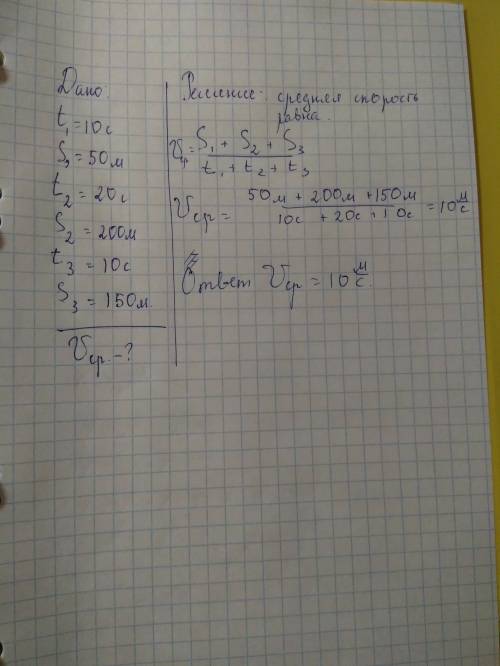 Дано:
t₁=10с
S₁=50м
t₂=20с
S₂=200м
t₃=10с
S₃=150м.
Vср.-?
Решение: средняя скорость
равна.
Vср=S₁+S₂+S₃/t₁+t₂+t₃
Vср=50м+200м+150м/10с+20с+10с=10м/с
Ответ Vср=10м/с.